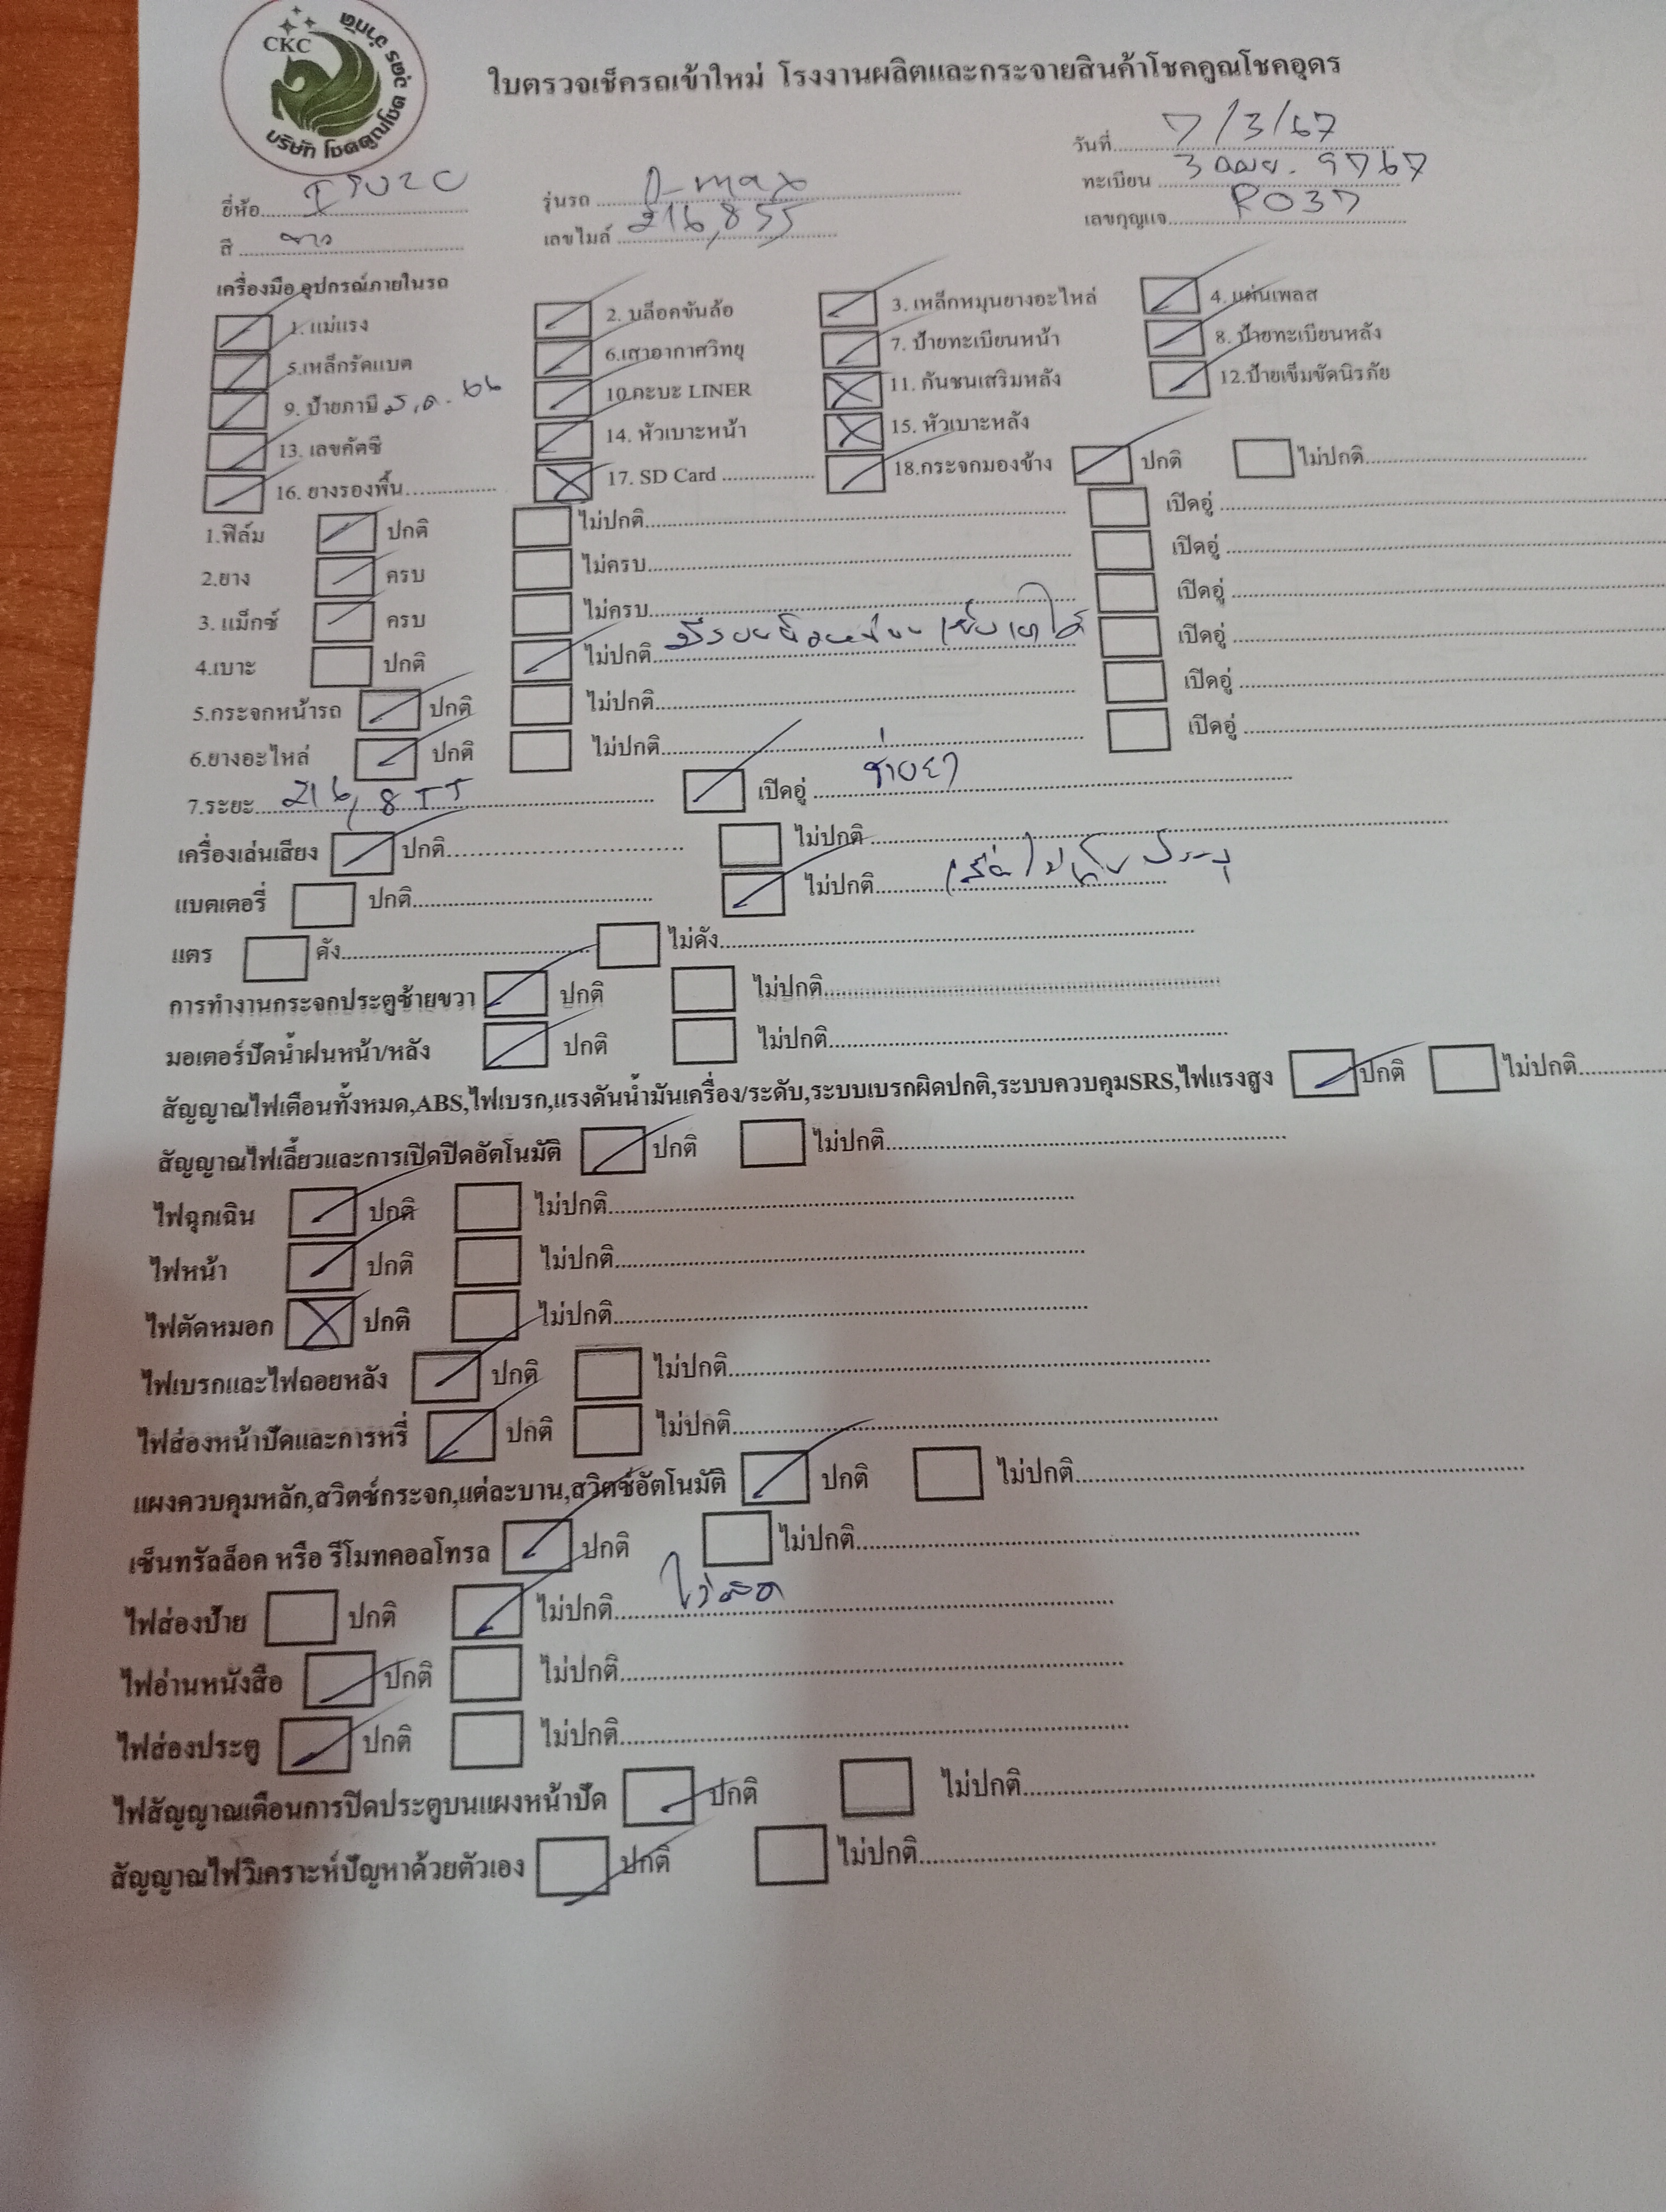 CKC
บริษัท โชคคูณโชค อุดร จำกัด
ใบตรวจเช็ครถเข้าใหม่ โรงงานผลิตและกระจายสินค้าโชคคูณโชคอุดร
วันที่ 7/3/67
ยี่ห้อ ISUZU รุ่นรถ D-max ทะเบียน 3 9767
สี ขาว เลขไมล์ 216,855 เลขกุญแจ R037
เครื่องมือ อุปกรณ์ภายในรถ
1. แม่แรง 2. บล็อคขันล้อ 3. เหล็กหมุนยางอะไหล่ 4. แผ่นเพลส
5.เหล็กรัดแบต 6.เสาอากาศวิทยุ 7. ป้ายทะเบียนหน้า 8. ป้ายทะเบียนหลัง
9. ป้ายภาษี ธ.ค. 66 10.คะบะ LINER 11. กันชนเสริมหลัง 12.ป้ายเข็มขัดนิรภัย
13. เลขคัตซี 14. หัวเบาะหน้า 15. หัวเบาะหลัง
16. ยางรองพื้น 17. SD Card 18.กระจกมองข้าง ปกติ ไม่ปกติ
1.ฟิล์ม ปกติ ไม่ปกติ เปิดอู่
2.ยาง ครบ ไม่ครบ เปิดอู่
3. แม็กซ์ ครบ ไม่ครบ เปิดอู่
4.เบาะ ปกติ ไม่ปกติ เปิดอู่
5.กระจกหน้ารถ ปกติ ไม่ปกติ เปิดอู่
6.ยางอะไหล่ ปกติ ไม่ปกติ เปิดอู่
7.ระยะ 216,855 เปิดอู่
เครื่องเล่นเสียง ปกติ ไม่ปกติ
แบตเตอรี่ ปกติ ไม่ปกติ
แตร ดัง ไม่ดัง
การทำงานกระจกประตูซ้ายขวา ปกติ ไม่ปกติ
มอเตอร์ปัดน้ำฝนหน้า/หลัง ปกติ ไม่ปกติ
สัญญาณไฟเตือนทั้งหมด,ABS,ไฟเบรก,แรงดันน้ำมันเครื่อง/ระดับ,ระบบเบรกผิดปกติ,ระบบควบคุมSRS,ไฟแรงสูง ปกติ ไม่ปกติ
สัญญาณไฟเลี้ยวและการเปิดปิดอัตโนมัติ ปกติ ไม่ปกติ
ไฟฉุกเฉิน ปกติ ไม่ปกติ
ไฟหน้า ปกติ ไม่ปกติ
ไฟตัดหมอก ปกติ ไม่ปกติ
ไฟเบรกและไฟถอยหลัง ปกติ ไม่ปกติ
ไฟส่องหน้าปัดและการหรี่ ปกติ ไม่ปกติ
แผงควบคุมหลัก,สวิตซ์กระจก,แต่ละบาน,สวิตซ์อัตโนมัติ ปกติ ไม่ปกติ
เซ็นทรัลล็อค หรือ รีโมทคอลโทรล ปกติ ไม่ปกติ
ไฟส่องป้าย ปกติ ไม่ปกติ ไม่ติด
ไฟอ่านหนังสือ ปกติ ไม่ปกติ
ไฟส่องประตู ปกติ ไม่ปกติ
ไฟสัญญาณเตือนการปิดประตูบนแผงหน้าปัด ปกติ ไม่ปกติ
สัญญาณไฟวิเคราะห์ปัญหาด้วยตัวเอง ปกติ ไม่ปกติ